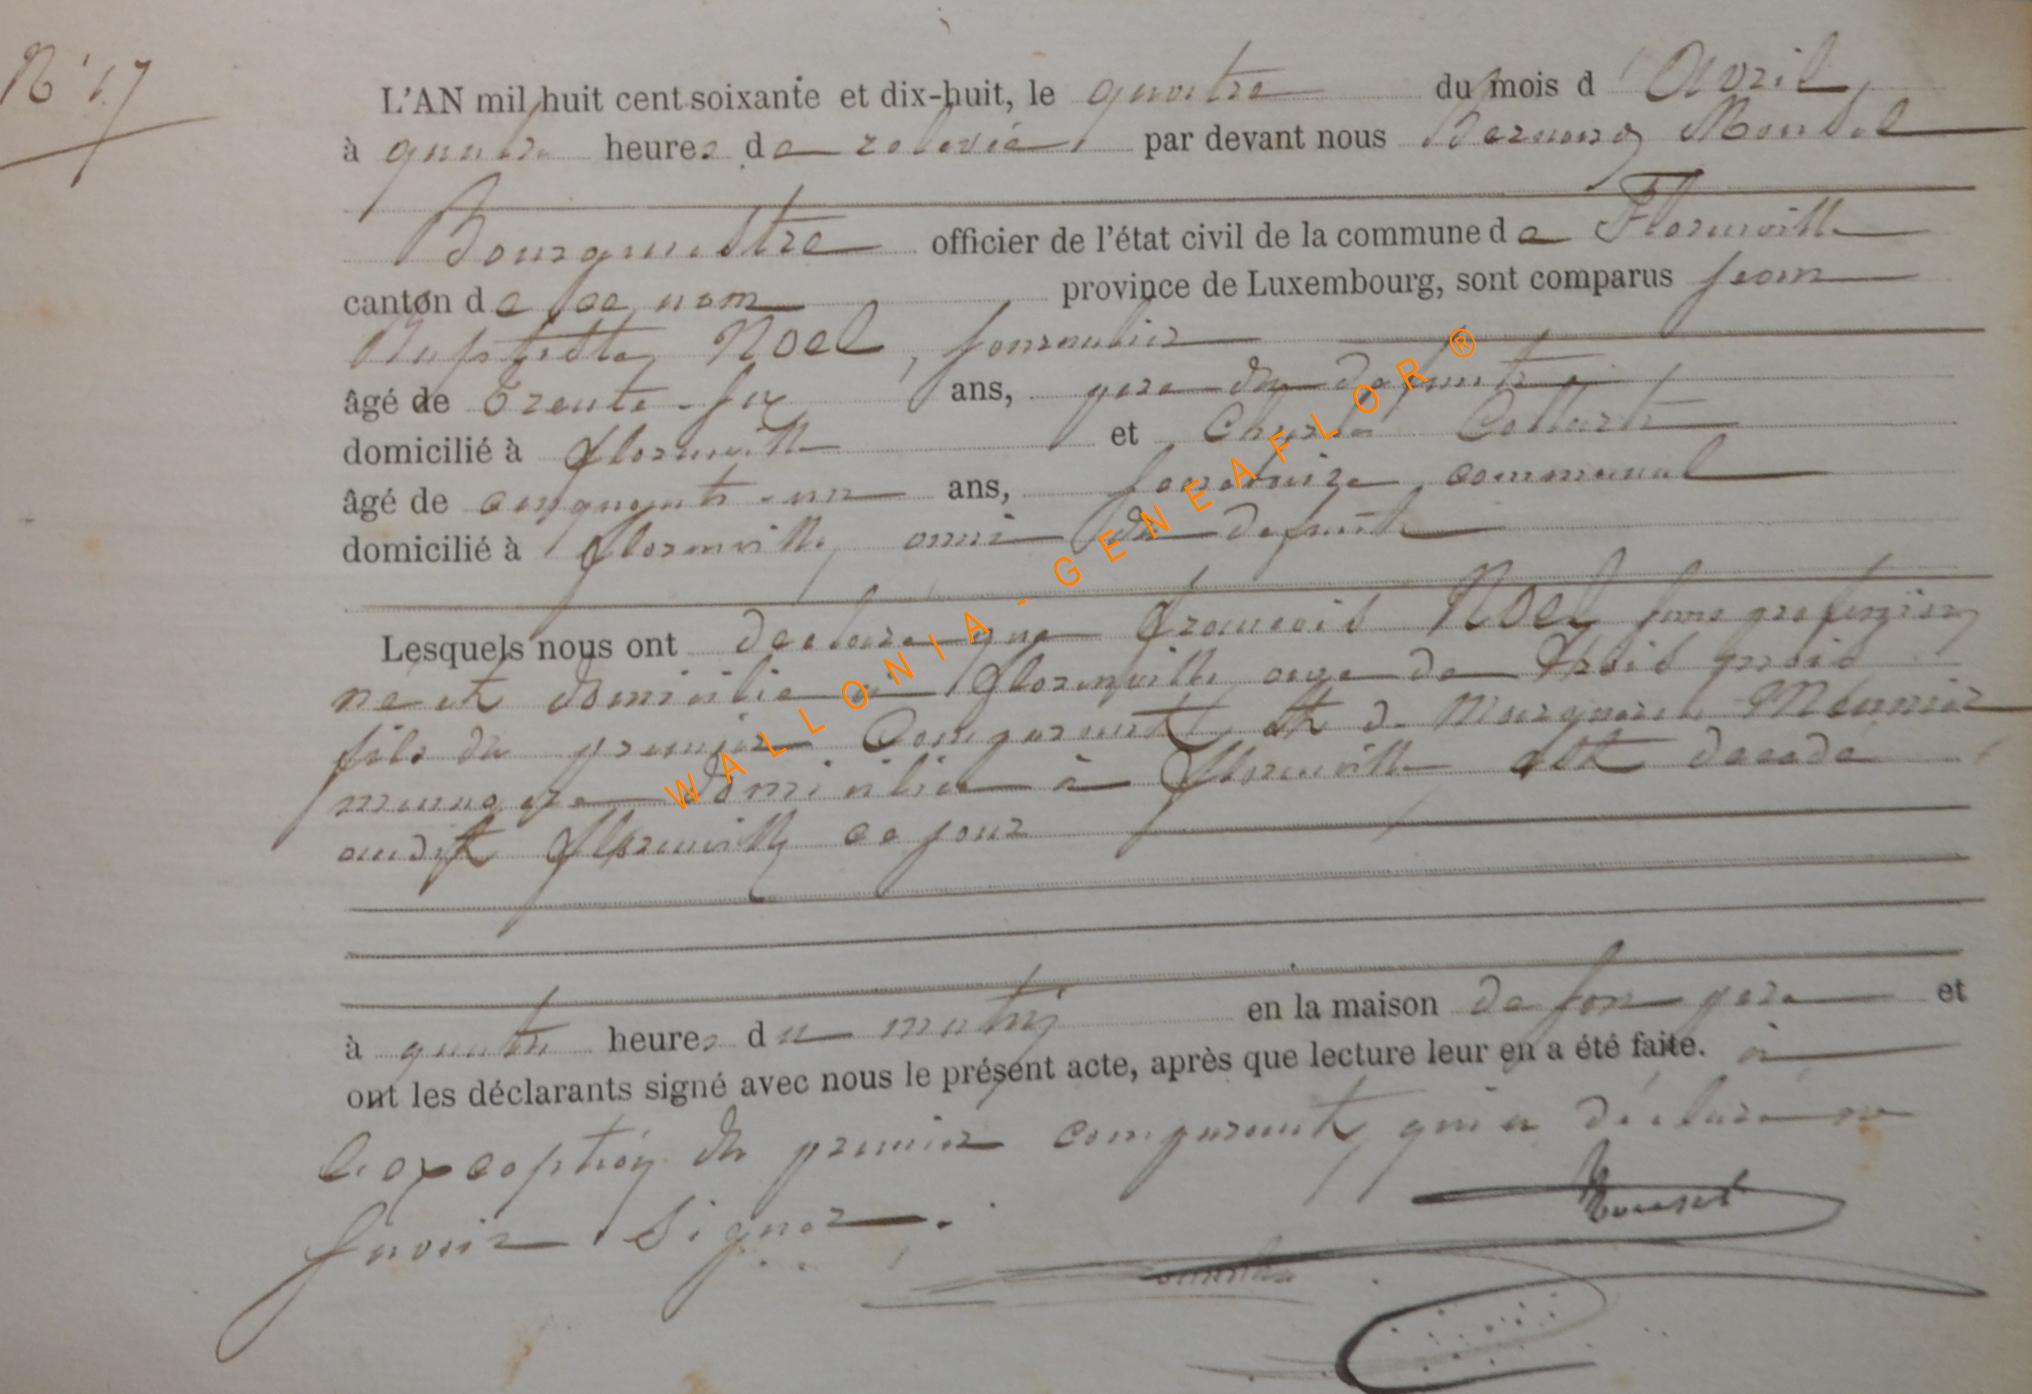 N° 17
L'AN mil huit cent soixante et dix-huit, le quatre du mois d'Avril
à quatre heures de relevée, par devant nous Bernard
Bourgmestre officier de l'état civil de la commune de Florenville
canton de ce nom province de Luxembourg, sont comparus Jean
Baptiste Noel, journalier
âgé de trente-six ans, père du defunt
domicilié à Florenville et Charles Collart
âgé de cinquante-un ans, secretaire communal
domicilié à Florenville, ami du defunt
Lesquels nous ont declaré que François Noel sans profession
né et domicilié à Florenville agé de trois mois
fils du premier Comparant et de Marguerite Meunier
menagère domiciliée à Florenville est decedé
audit Florenville ce jour
à quatre heures du matin en la maison de son père et
ont les déclarants signé avec nous le présent acte, après que lecture leur en a été faite. à
l'exception du premier comparant qui a déclaré ne
savoir signer.
WALLONIA - GENEAFLOR ®